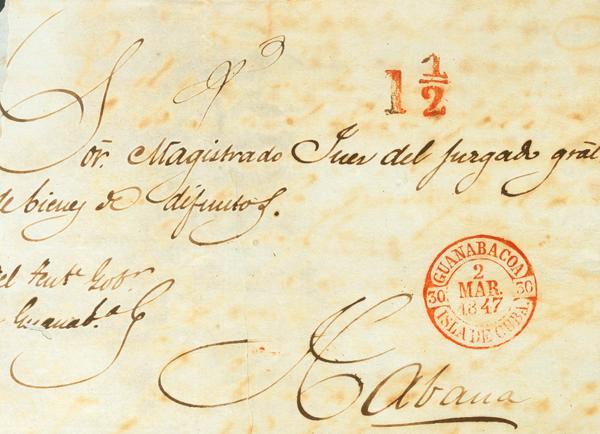 1 1/2
Sor. Magistrado Juez del juzgado gral
de bienes de difuntos.
del Tente Gobr.
Guanab.a
GUANABACOA
2
MAR.
1847
30 30
ISLA DE CUBA
Habana